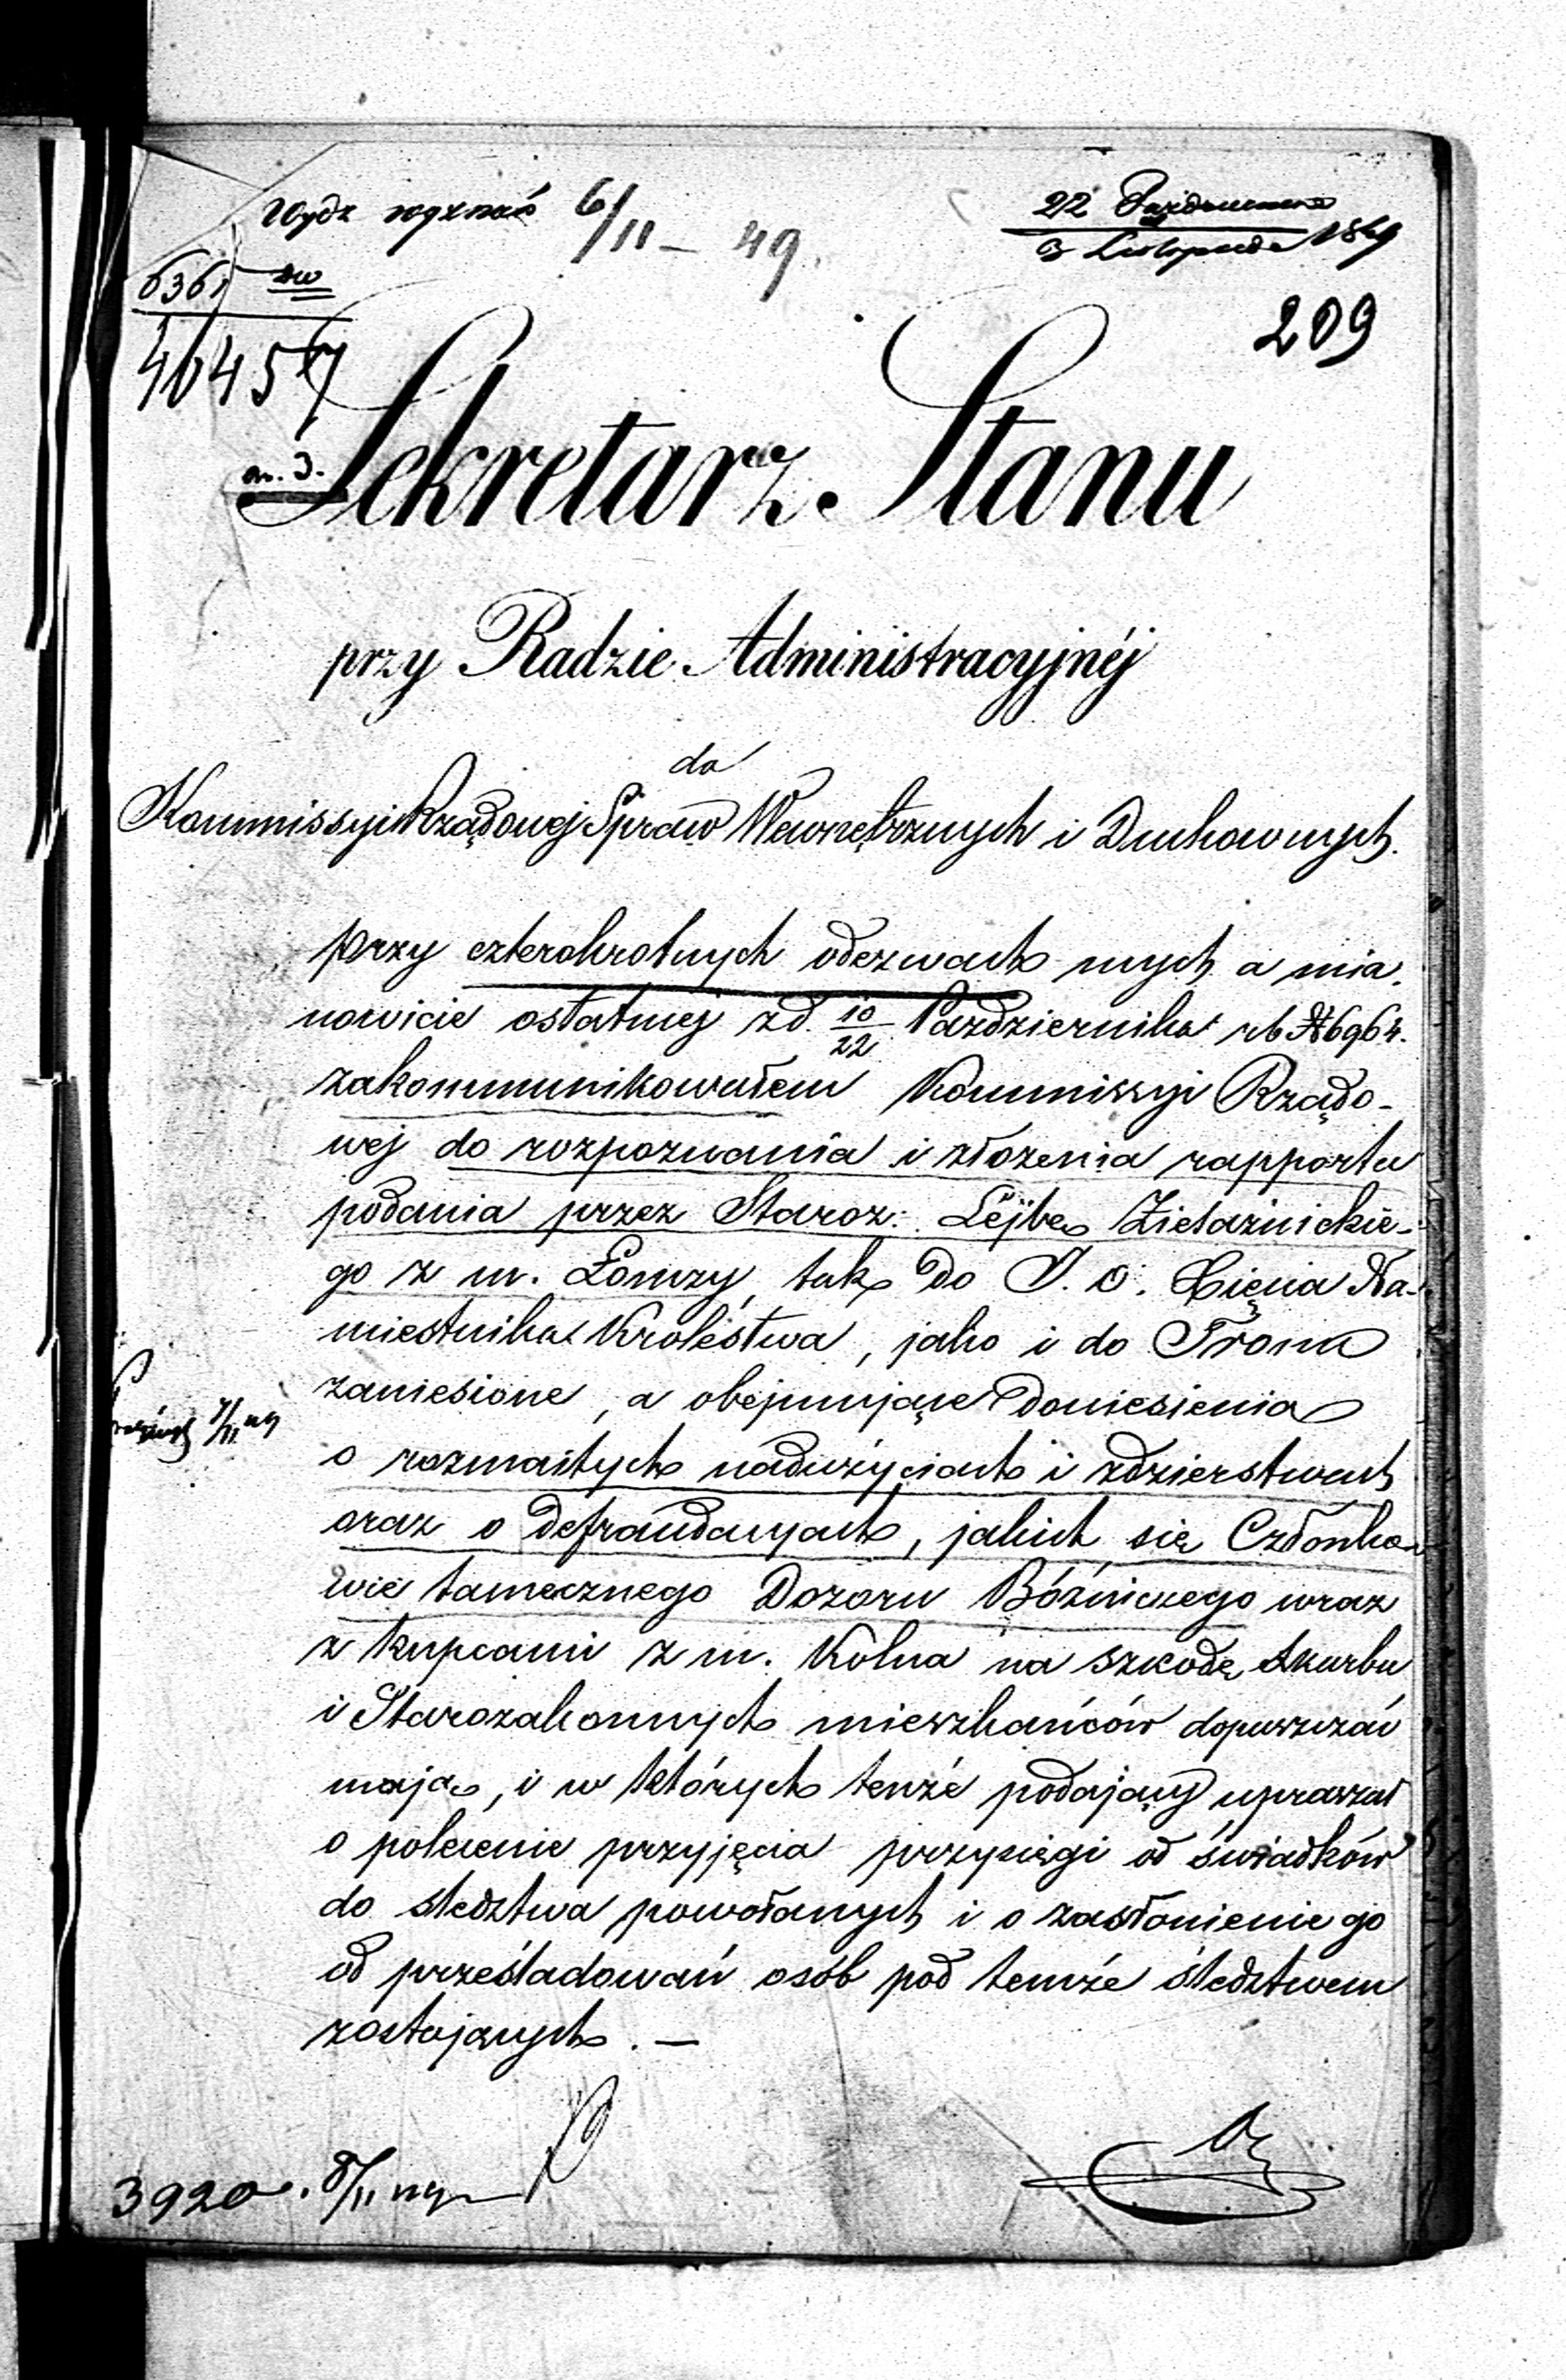 Wydz 6/11 – 49.
22 Października
3 Listopada 1849
209
6361
46457
Sekretarz Stanu
przy Radzie Administracyjnéj
do
Kommissyi Rządowej Spraw Wewnętrznych i Duchownych.
przy czterokrotnych odezwach mych a mia-
nowicie ostatniej z d. 10/22 Października rb № 6964.
zakommunikowałem Kommissyi Rządo-
wej do rozpoznania i złożenia rapportu
podania przez Staroz: Lejbę Zielaznickie-
go z m. Łomży, tak do J. O. Xięcia Na-
miestnika Królestwa, jako i do Tronu
zaniesione, a obejmujące doniesienia
o rozmaitych nadużyciach i zdzierstwach
oraz o defraudacyach, jakich się Członko-
wie tamecznego Dozoru Bóźniczego wraz
z kupcami z m. Kolna na szkodę Skarbu
i Starozakonnych mieszkańców dopuszczać
mają, i w których tenże podający upraszał
o polecenie przyjęcia przysięgi od świadków
do śledztwa powołanych i o zasłonienie go
od prześladowań osób pod temże śledztwem
zostających. –
7/11 49
3920. 8/11